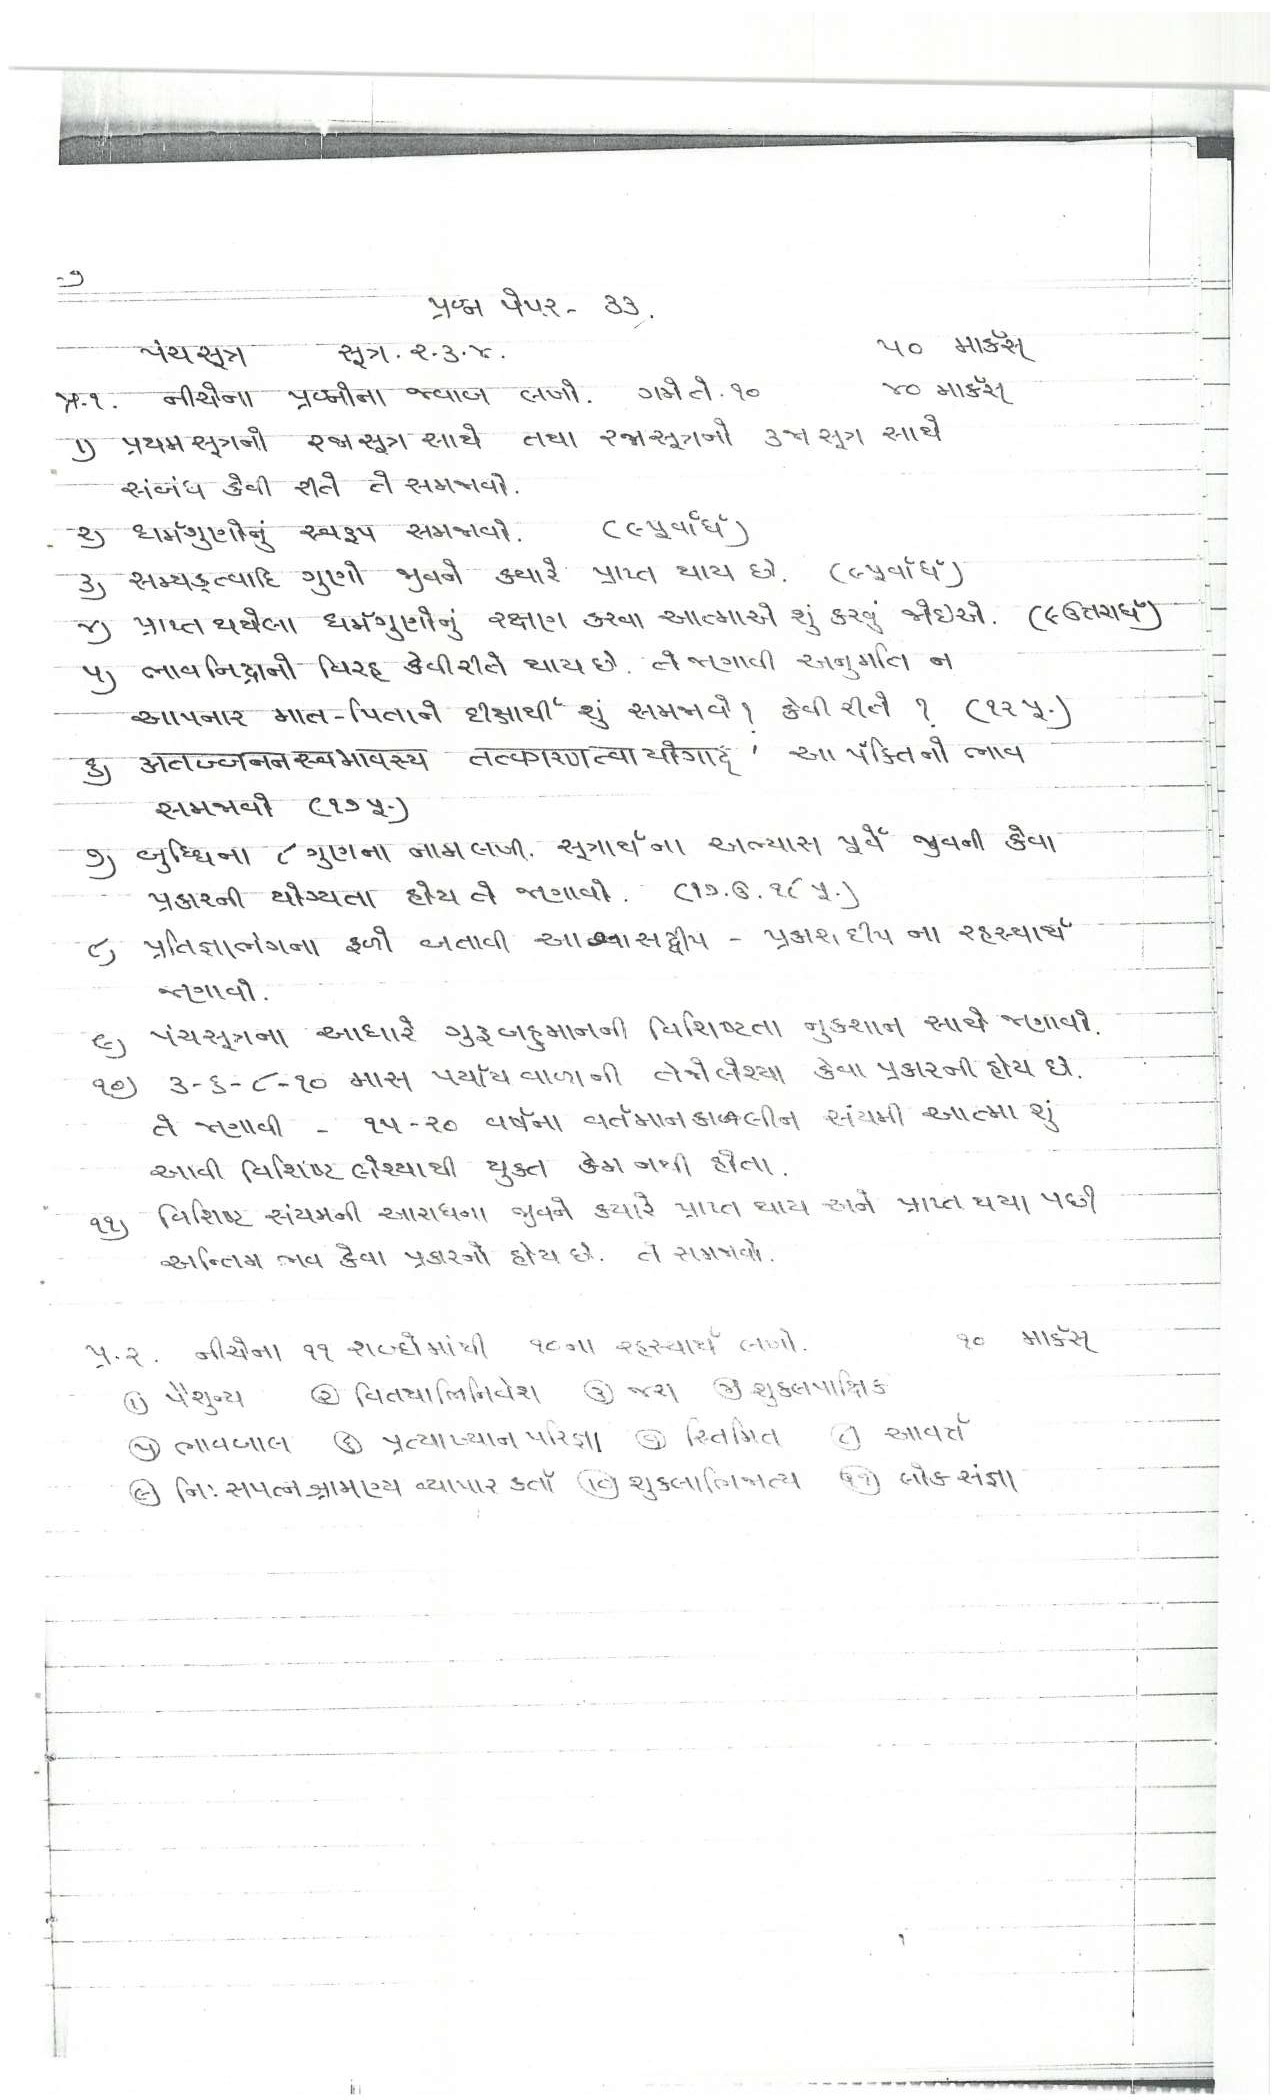 -૧
પ્રશ્ન પેપર - ૩૩.
પંચસૂત્ર સૂત્ર. ૨.૩.૪. ૫૦ માર્કસ્
પ્ર.૧. નીચેના પ્રશ્નોના જવાબ લખો. ગમે તે. ૧૦ ૪૦ માર્કસ્
૧) પ્રથમસૂત્રનો ૨જા સૂત્ર સાથે તથા ૨જાસૂત્રનો ૩જા સૂત્ર સાથે
સંબંધ કેવી રીતે તે સમજાવો.
૨) ધર્મગુણોનું સ્વરૂપ સમજાવો. (૯પૂર્વાર્ધ)
૩) સમ્યક્ત્વાદિ ગુણો જીવને ક્યારે પ્રાપ્ત થાય છે. (૯પૂર્વાર્ધ)
૪) પ્રાપ્ત થયેલા ધર્મગુણોનું રક્ષણ કરવા આત્માએ શું કરવું જોઇએ. (૯ઉતરાર્ધ)
૫) ભાવનિદ્રાનો વિરહ કેવીરીતે થાય છે. તે જણાવી અનુમતિ ન
આપનાર માતા-પિતાને દીક્ષાર્થી શું સમજાવે? કેવી રીતે ? (૧૨ પૂ.)
૬) अतज्जननस्वभावस्य तत्कारणत्वायोगाद् ' આ પંક્તિનો ભાવ
સમજાવો (૧૭ પૂ.)
૭) બુધ્ધિના ૮ ગુણના નામ લખી. સૂત્રાર્થના અભ્યાસ પૂર્વે જીવની કેવા
પ્રકારની યોગ્યતા હોય તે જણાવો. (૧૭.ઉ. ૧૮ પૂ.)
૮) પ્રતિજ્ઞાભંગના ફળો બતાવી આશ્વાસદ્વીપ - પ્રકાશદીપ ના રહસ્યાર્થ
જણાવો.
૯) પંચસૂત્રના આધારે ગુરૂબહુમાનની વિશિષ્ટતા નુકશાન સાથે જણાવો.
૧૦) ૩-૬-૮-૧૦ માસ પર્યાય વાળાની તેજોલેશ્યા કેવા પ્રકારની હોય છે.
તે જણાવી - ૧૫-૨૦ વર્ષના વર્તમાનકાળલીન સંયમી આત્મા શું
આવી વિશિષ્ટ લેશ્યાથી યુક્ત કેમ નથી હોતા.
૧૧) વિશિષ્ટ સંયમની આરાધના જીવને ક્યારે પ્રાપ્ત થાય અને પ્રાપ્ત થયા પછી
અન્તિમ ભવ કેવા પ્રકારનો હોય છે. તે સમજાવો.
પ્ર.૨. નીચેના ૧૧ શબ્દોમાંથી ૧૦ના રહસ્યાર્થ લખો. ૧૦ માર્કસ્
① પૈશુન્ય ② વિતથાભિનિવેશ ③ જરા ④ શુક્લપાક્ષિક
⑤ ભાવબાલ ⑥ પ્રત્યાખ્યાન પરિજ્ઞા ⑦ સ્તિમિત ⑧ આવર્ત્ત
⑨ નિઃસપત્નશ્રામણ્ય વ્યાપાર કર્તા ⑩ શુકલાભિજાત્ય ⑪ લોકસંજ્ઞા